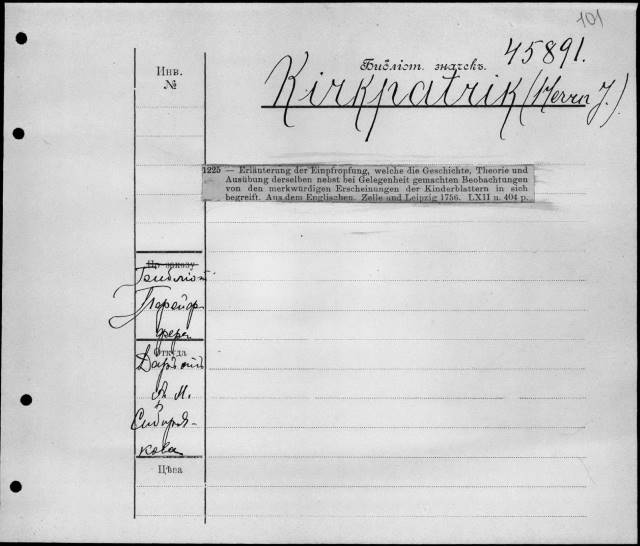 101
45891.
Библіот. значекъ.
Инв.
№
Kirkpatrik (Herrn J.)
1225 — Erläuterung der Einpfropfung, welche die Geschichte, Theorie und
Ausübung derselben nebst bei Gelegenheit gemachten Beobachtungen
von den merkwürdigen Erscheinungen der Kinderblattern in sich
begreift. Aus dem Englischen. Zelle und Leipzig 1756. LXII u. 404 p.
По заказу
Библіот
Откуда
Даръ отъ
Сибиря-
кова
Цѣна